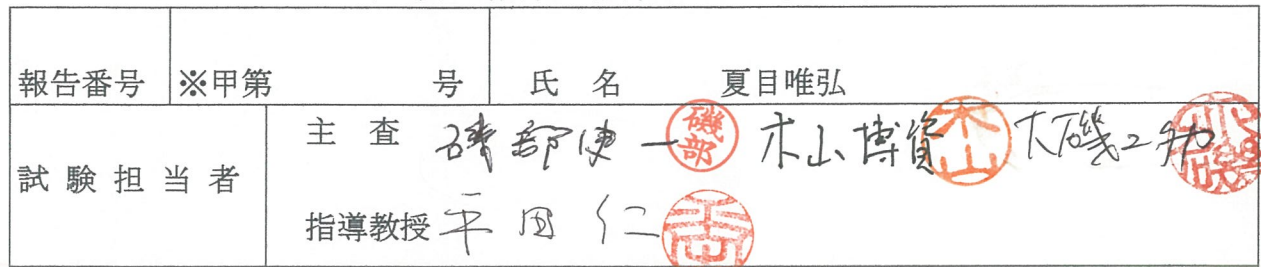 報告番号 ※甲第 号 氏 名 夏目唯弘
試験担当者 主 査 磯部健一 磯部 木山博資 木山 大磯ユタカ 大磯
指導教授 平田仁